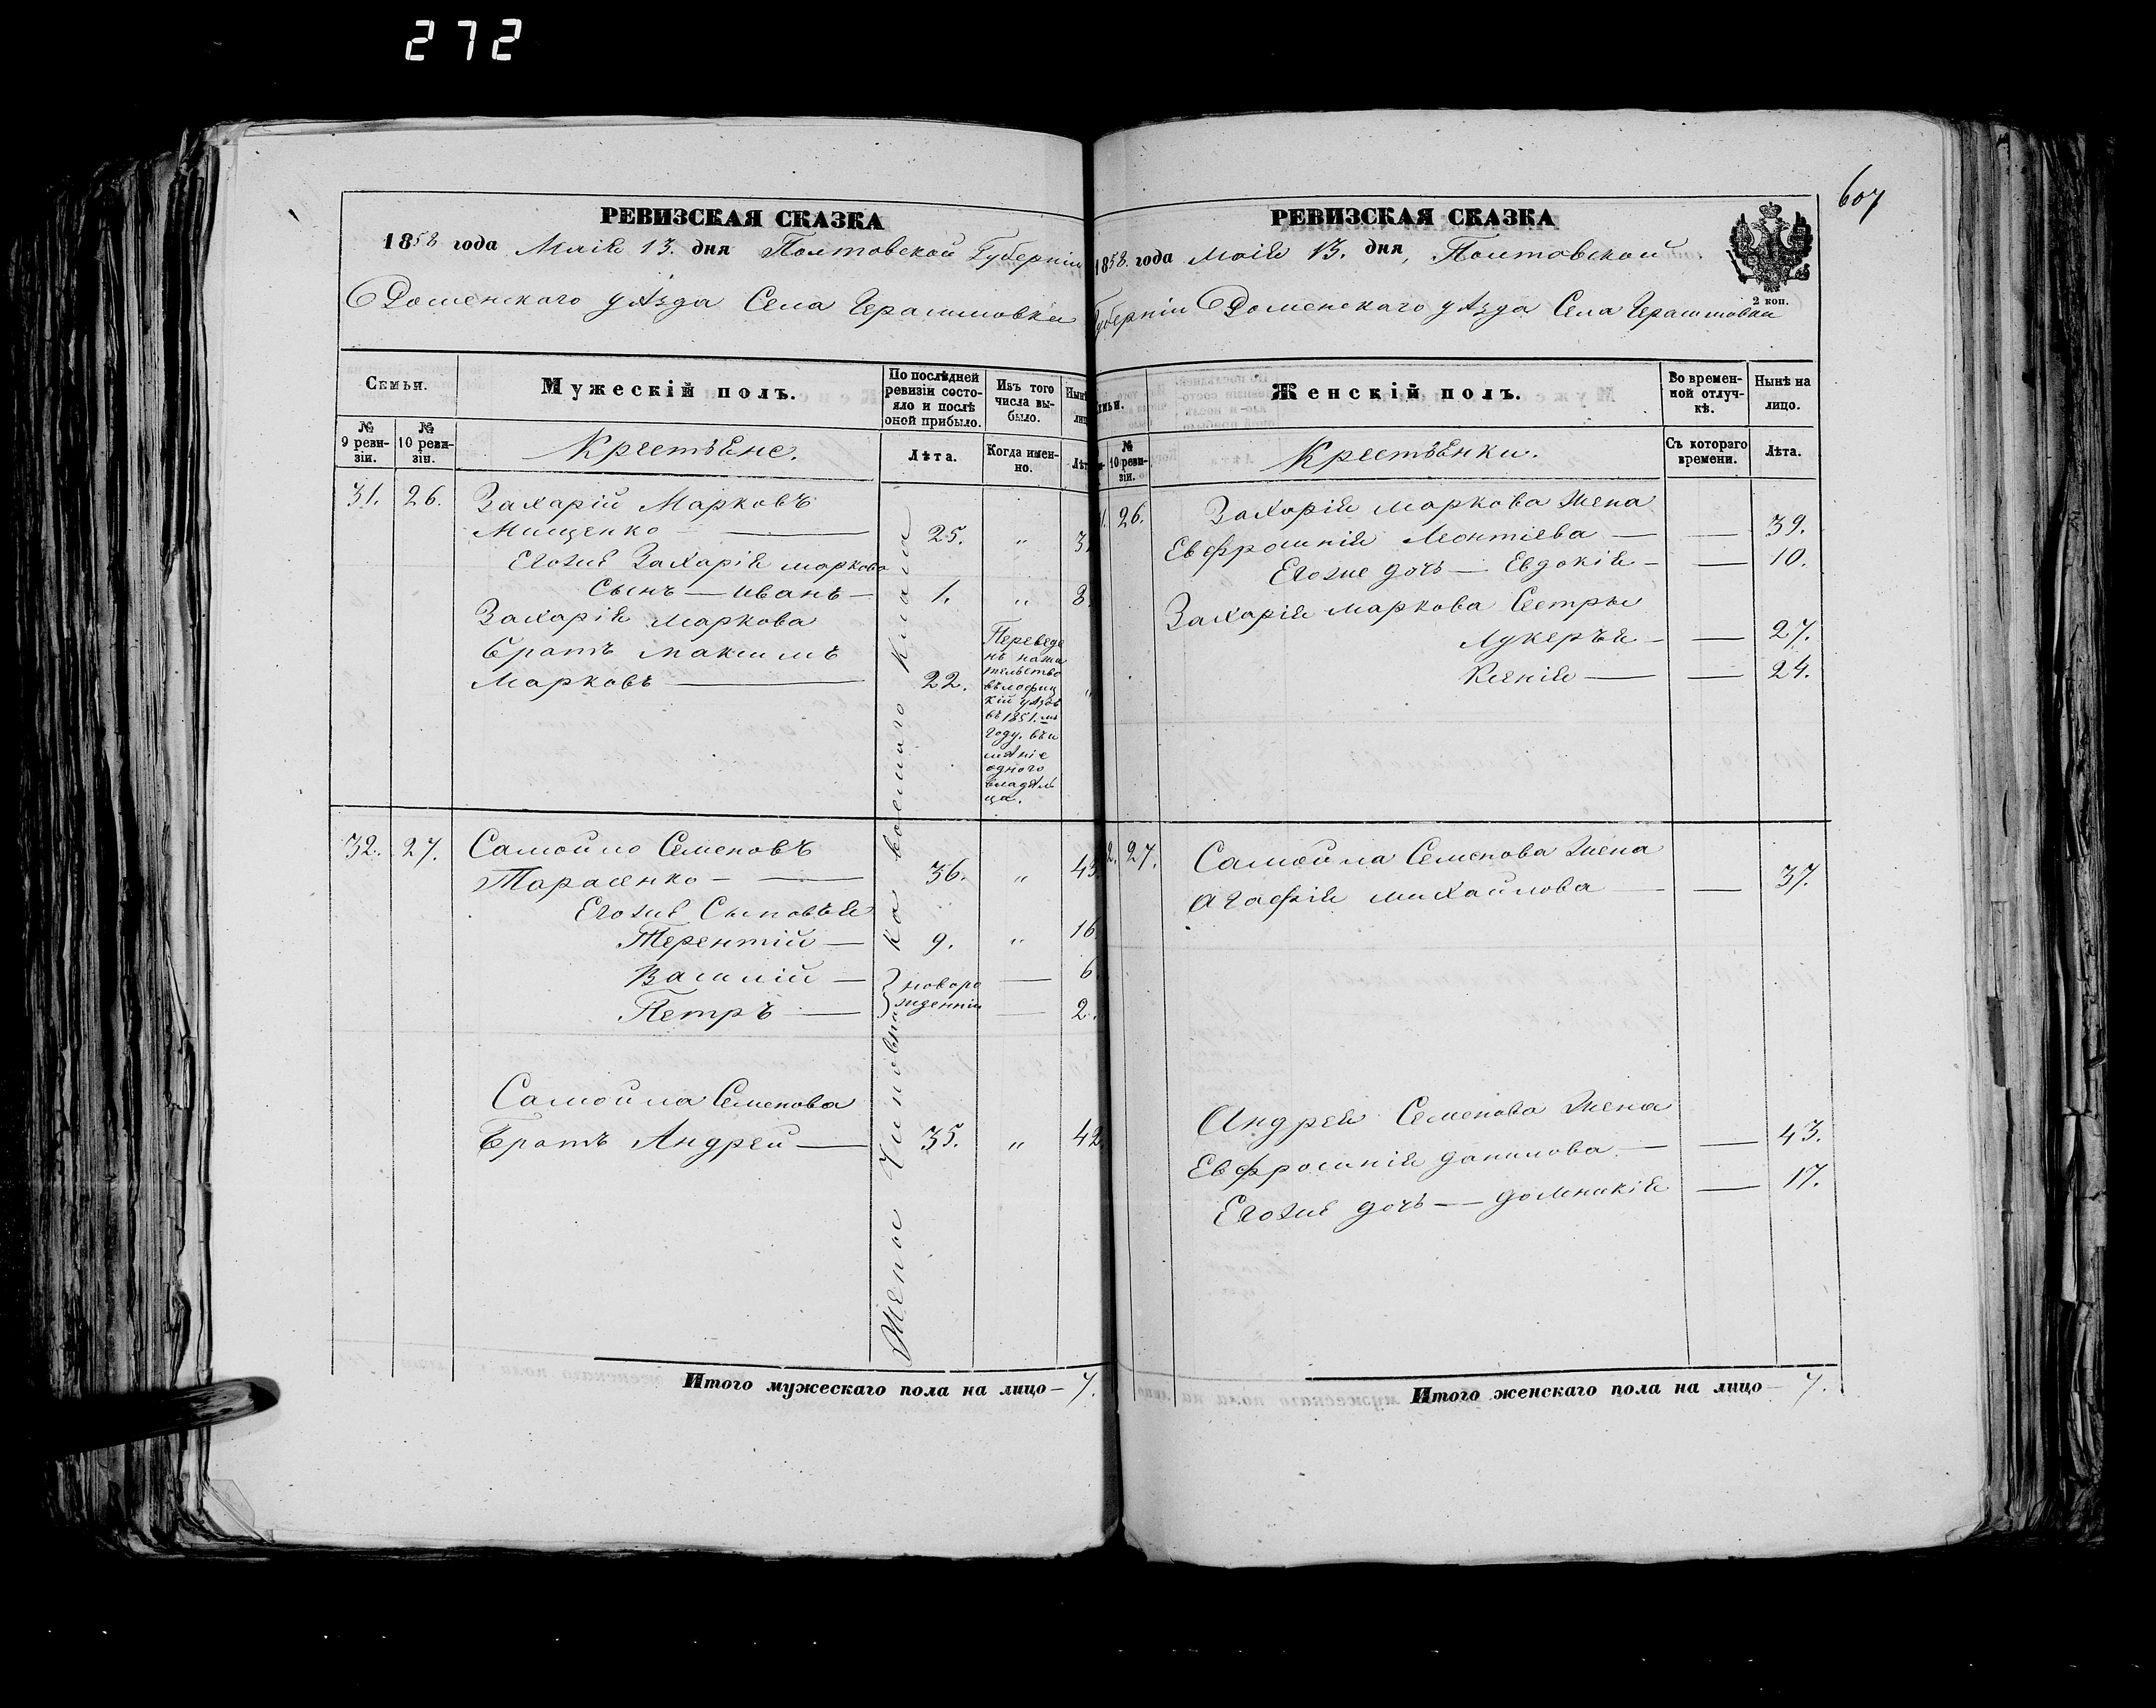 272
607
РЕВИЗСКАЯ СКАЗКА
1858 года Маія 13. дня Полтовской Губерніи
Роменскаго уѣзда Села Герасимовки
Семьи.
Мужескій полъ.
По послѣдней ревизіи состояло и послѣ оной прибыло.
Изъ того числа выбыло.
Нынѣ
лиц
№ 9 ревизіи.
№ 10 ревизіи.
Крестьяне.
Лѣта.
Когда именно.
Лѣт
31. 26. Захарій Марковъ
Мищенко — 25. „ 3
Егоже Захарія маркова
Сынъ — Иванъ — 1. „ 8.
Захарія Маркова
братъ Максимъ
Марковъ — 22. „
Переведе
нъ нажи
тельство
въ
кій уѣздъ
въ 1851. мъ
году. въи
мѣніе
одного
владѣль
ца.
32. 27. Самойло Семеновъ
Тарасенко — 36. „ 43.
Егоже Сыновья
Терентій — 9. „ 16
Василій — 6
Петръ — 2.
новоро
жденніи
Самойла Семенова
братъ Андрей — 35. „ 42.
Итого мужескаго пола на лицо — 7.
РЕВИЗСКАЯ СКАЗКА
1858. года Маія 13. дня, Полтовской
2 коп.
Губерніи Роменскаго уѣзда Села Герасимовки
емьи.
Женскій полъ.
Во временной отлучкѣ.
Нынѣ на лицо.
№ 10 ревизіи.
Крестьянки.
Съ котораго времени.
Лѣта.
1. 26. Захарія маркова Жена
Евфросинія Леонтіева — — 39.
Егоже дочь — Евдокія — — 10.
Захарія маркова Сестры
Лукерья — — 27.
Ксенія — — 24.
2. 27. Самойла Семенова Жена
Агафія михайлова — — 37.
Андрея Семенова Жена
Евфросинія данилова — — 43.
Егоже дочь — домникія — 17.
Итого женскаго пола на лицо — 7.